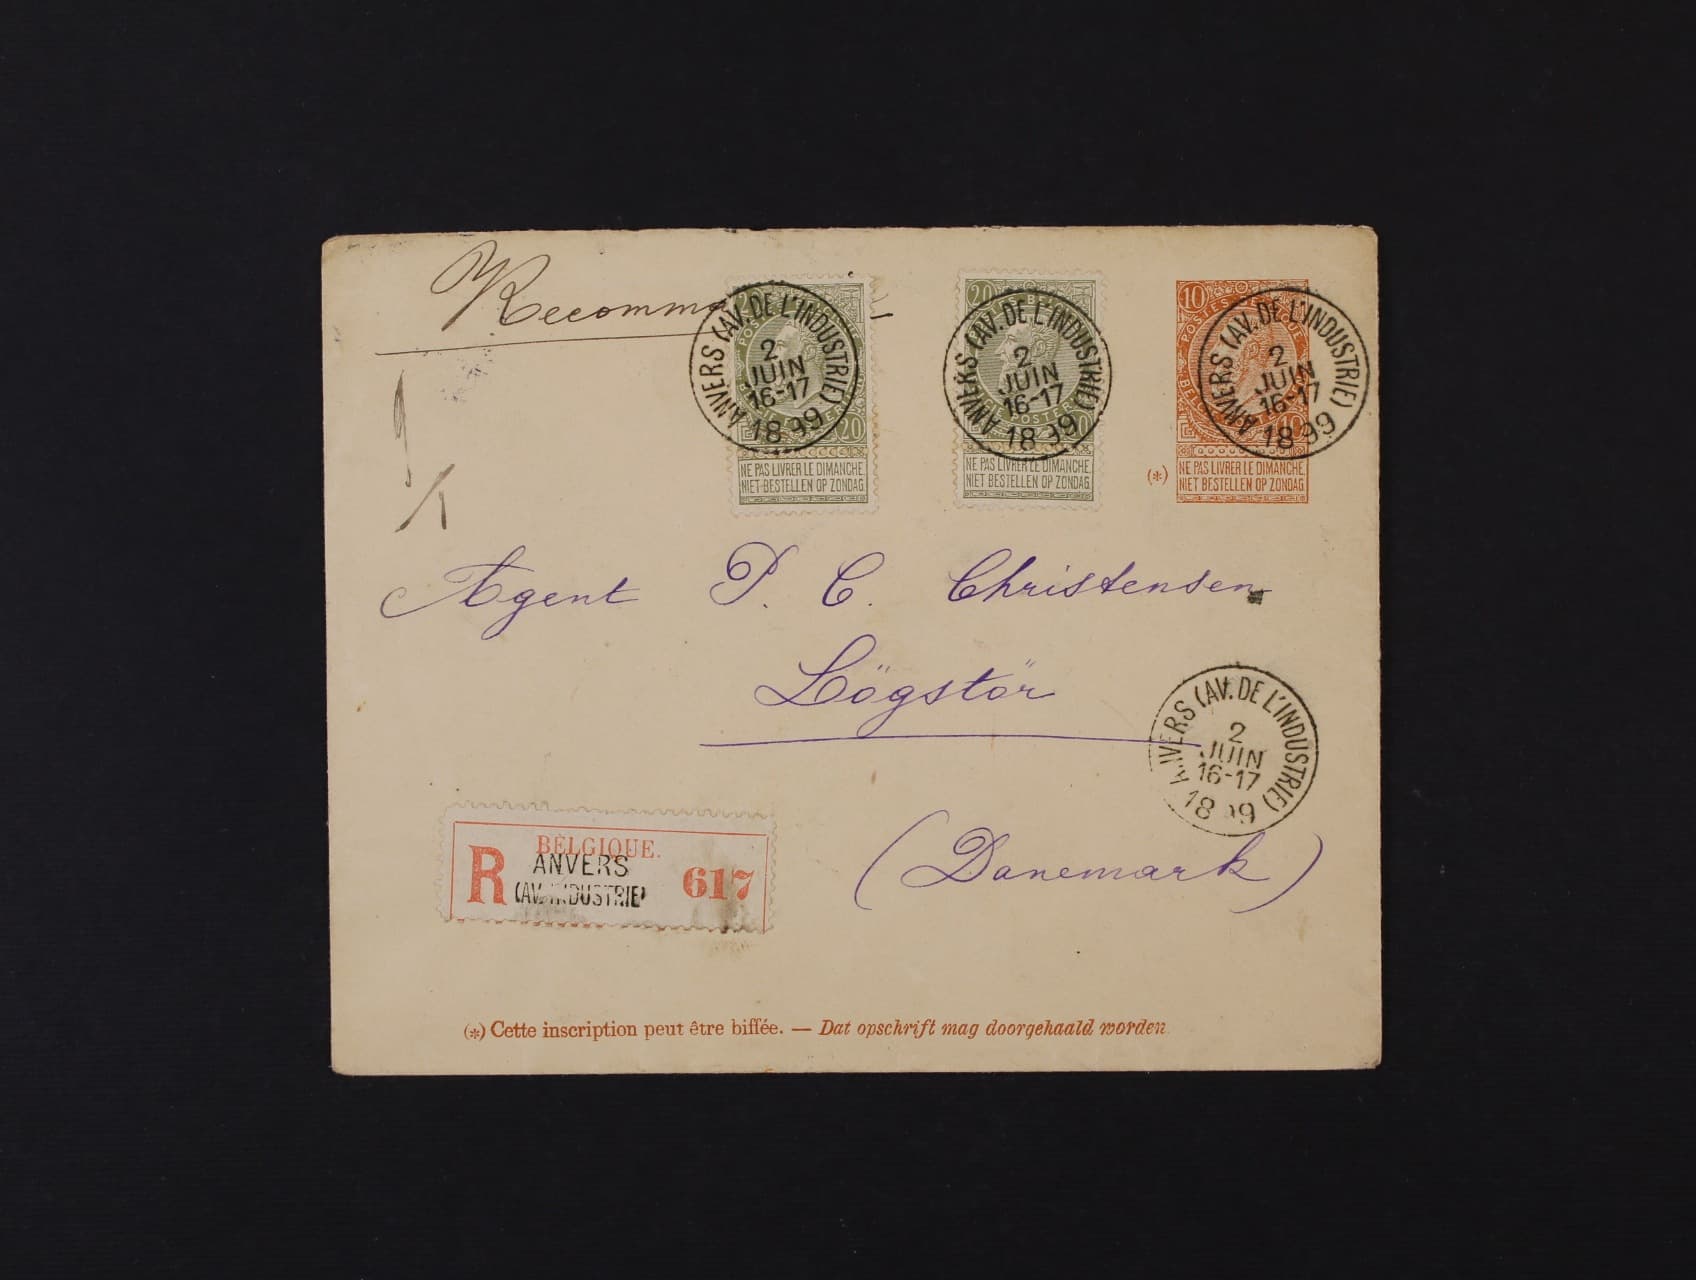 Recomma
20
20
20
10
POSTES BELGIQUE
NE PAS LIVRER LE DIMANCHE
NIET BESTELLEN OP ZONDAG
NE PAS LIVRER LE DIMANCHE
NIET BESTELLEN OP ZONDAG
(*) NE PAS LIVRER LE DIMANCHE
NIET BESTELLEN OP ZONDAG
ANVERS (AV. DE L'INDUSTRIE)
2
JUIN
16-17
1899
ANVERS (AV. DE L'INDUSTRIE)
2
JUIN
16-17
1899
ANVERS (AV. DE L'INDUSTRIE)
2
JUIN
16-17
1899
Agent P. C. Christensen
Lögstör
ANVERS (AV. DE L'INDUSTRIE)
2
JUIN
16-17
1899
(Danemark)
BELGIQUE.
R ANVERS 617
(AV. INDUSTRIE)
(*) Cette inscription peut être biffée. — Dat opschrift mag doorgehaald worden